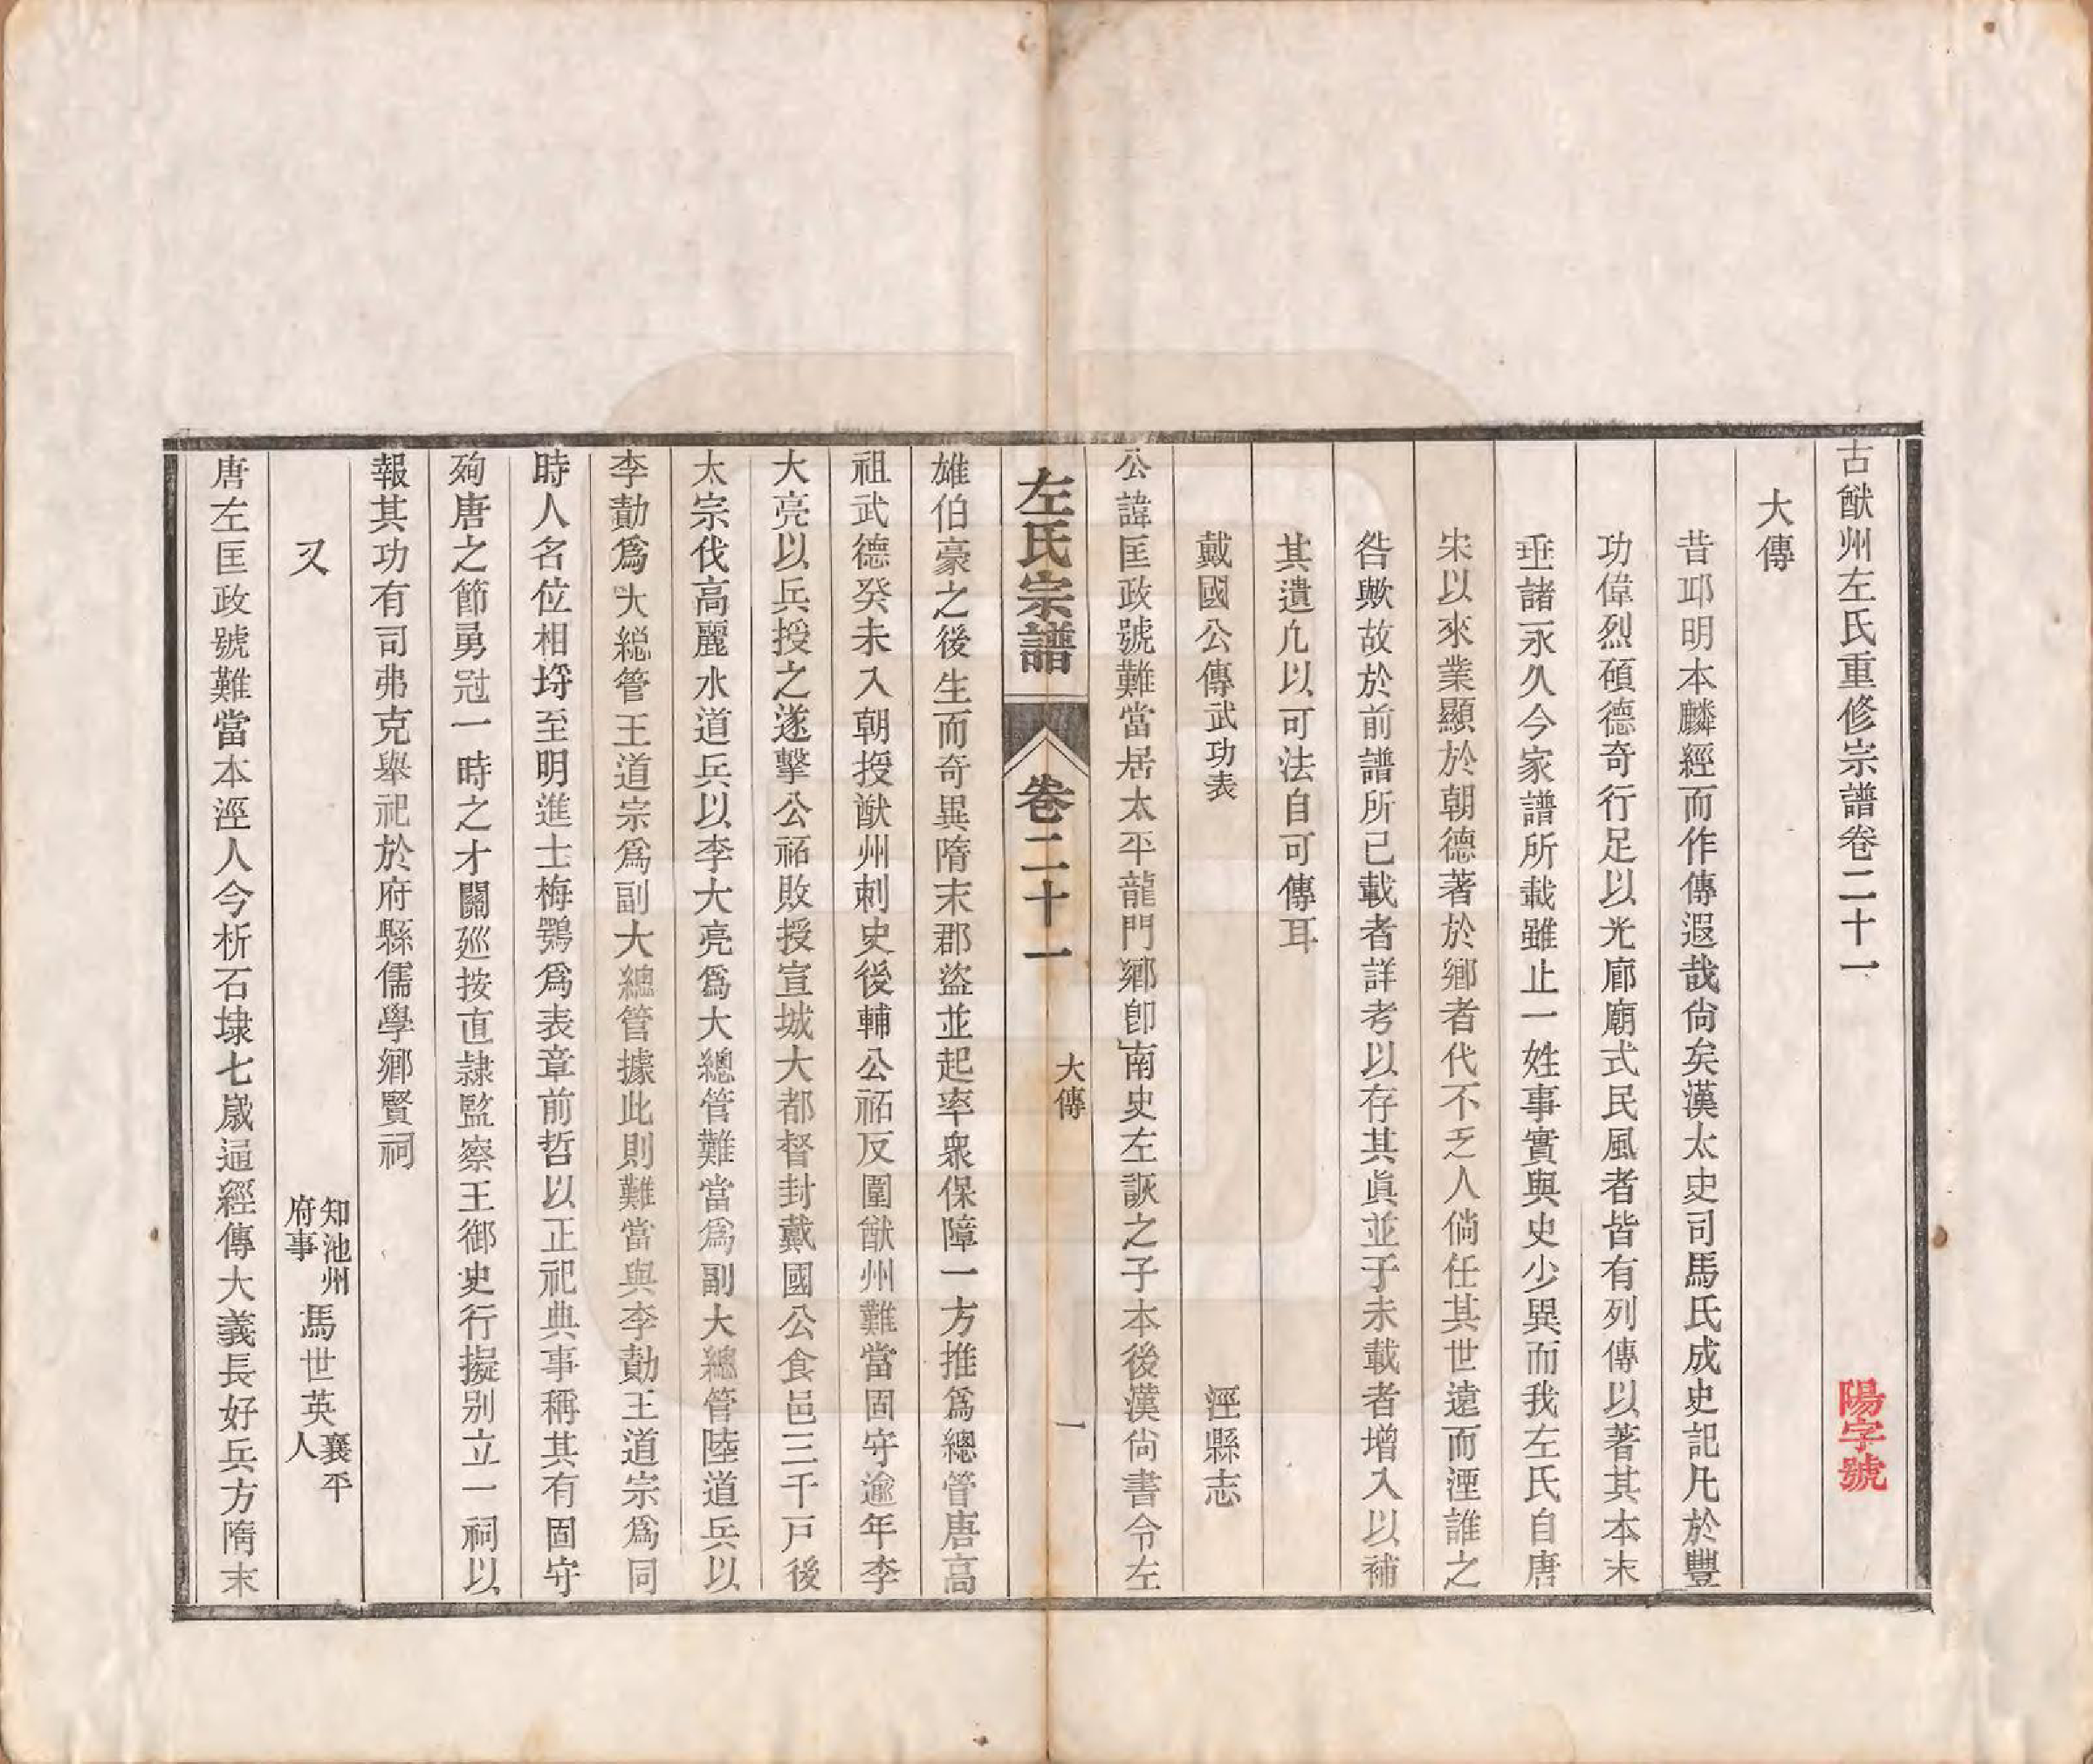 古猷州左氏重修宗譜卷二十一
陽字號
大傳
昔邱明本麟經而作傳遐哉尙矣漢太史司馬氏成史記凡於豐
功偉烈碩德奇行足以光廊廟式民風者皆有列傳以著其本末
垂諸永久今家譜所載雖止一姓事實與史少異而我左氏自唐
宋以來業顯於朝德著於鄉者代不乏人倘任其世遠而湮誰之
咎歟故於前譜所已載者詳考以存其眞並于未載者增入以補
其遺凢以可法自可傳耳
戴國公傳武功表
涇縣志
公諱匡政號難當居太平龍門鄉卽南史左詼之子本後漢尙書令左
左氏宗譜
卷二十一
大傳
一
雄伯豪之後生而奇異隋末郡盜並起率衆保障一方推爲總管唐高
祖武德癸未入朝授猷州刺史後輔公祏反圍猷州難當固守逾年李
大亮以兵授之遂擊公祏敗授宣城大都督封戴國公食邑三千戸後
太宗伐高麗水道兵以李大亮爲大總管難當爲副大總管陸道兵以
李勣爲大総管王道宗爲副大總管據此則難當與李勣王道宗爲同
時人名位相埒至明進士梅鶚爲表章前哲以正祀典事稱其有固守
殉唐之節勇冠一時之才關廵按直隷監察王御史行擬别立一祠以
報其功有司弗克舉祀於府縣儒學鄉賢祠
又
知池州
府事
馮世英
襄平
人
唐左匡政號難當本涇人今析石埭七嵗逼經傳大義長好兵方隋末